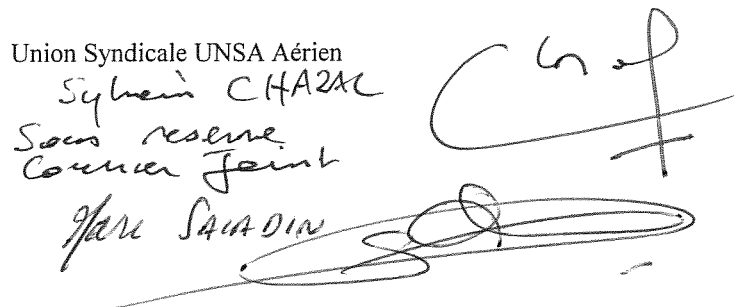 Union Syndicale UNSA Aérien
Sylvain CHAZAL
Sous reserve
Courrier Joint
Marc SALADIN